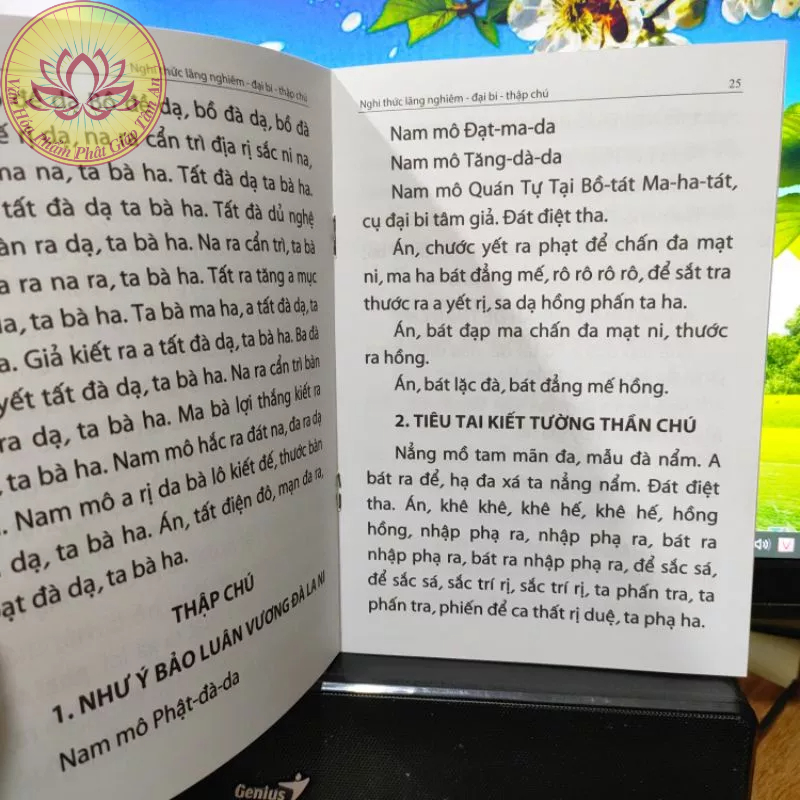 Văn Hóa Phẩm Phật Giáo Tâm An
Nghi thức lăng nghiêm - đại bi - thập chú
dạ, bồ đà dạ, bồ đà
dạ, na ra cẩn trì địa rị sắc ni na,
na na, ta bà ha. Tất đà dạ ta bà ha.
tất đà dạ ta bà ha. Tất đà dủ nghệ
ra dạ, ta bà ha. Na ra cẩn trì, ta bà
ra na ra, ta bà ha. Tất ra tăng a mục
ta bà ha. Ta bà ma ha, a tất đà dạ, ta
Giả kiết ra a tất đà dạ, ta bà ha. Ba đà
yết tất đà dạ, ta bà ha. Na ra cẩn trì bàn
ra dạ, ta bà ha. Ma bà lợi thắng kiết ra
, ta bà ha. Nam mô hắc ra đát na, đa ra dạ
. Nam mô a rị da bà lô kiết đế, thước bàn
dạ, ta bà ha. Án, tất điện đô, mạn đa ra,
đà dạ, ta bà ha.
THẬP CHÚ
1. NHƯ Ý BẢO LUÂN VƯƠNG ĐÀ LA NI
Nam mô Phật-đà-da
Nghi thức lăng nghiêm - đại bi - thập chú 25
Nam mô Đạt-ma-da
Nam mô Tăng-dà-da
Nam mô Quán Tự Tại Bồ-tát Ma-ha-tát,
cụ đại bi tâm giả. Đát điệt tha.
Án, chước yết ra phạt để chấn đa mạt
ni, ma ha bát đẳng mế, rô rô rô rô, để sắt tra
thước ra a yết rị, sa dạ hồng phấn ta ha.
Án, bát đạp ma chấn đa mạt ni, thước
ra hồng.
Án, bát lặc đà, bát đẳng mế hồng.
2. TIÊU TAI KIẾT TƯỜNG THẦN CHÚ
Nẳng mồ tam mãn đa, mẫu đà nẩm. A
bát ra để, hạ đa xá ta nẳng nẩm. Đát điệt
tha. Án, khê khê, khê hế, khê hế, hồng
hồng, nhập phạ ra, nhập phạ ra, bát ra
nhập phạ ra, bát ra nhập phạ ra, để sắc sá,
để sắc sá, sắc trí rị, sắc trí rị, ta phấn tra, ta
phấn tra, phiến để ca thất rị duệ, ta phạ ha.
Genius